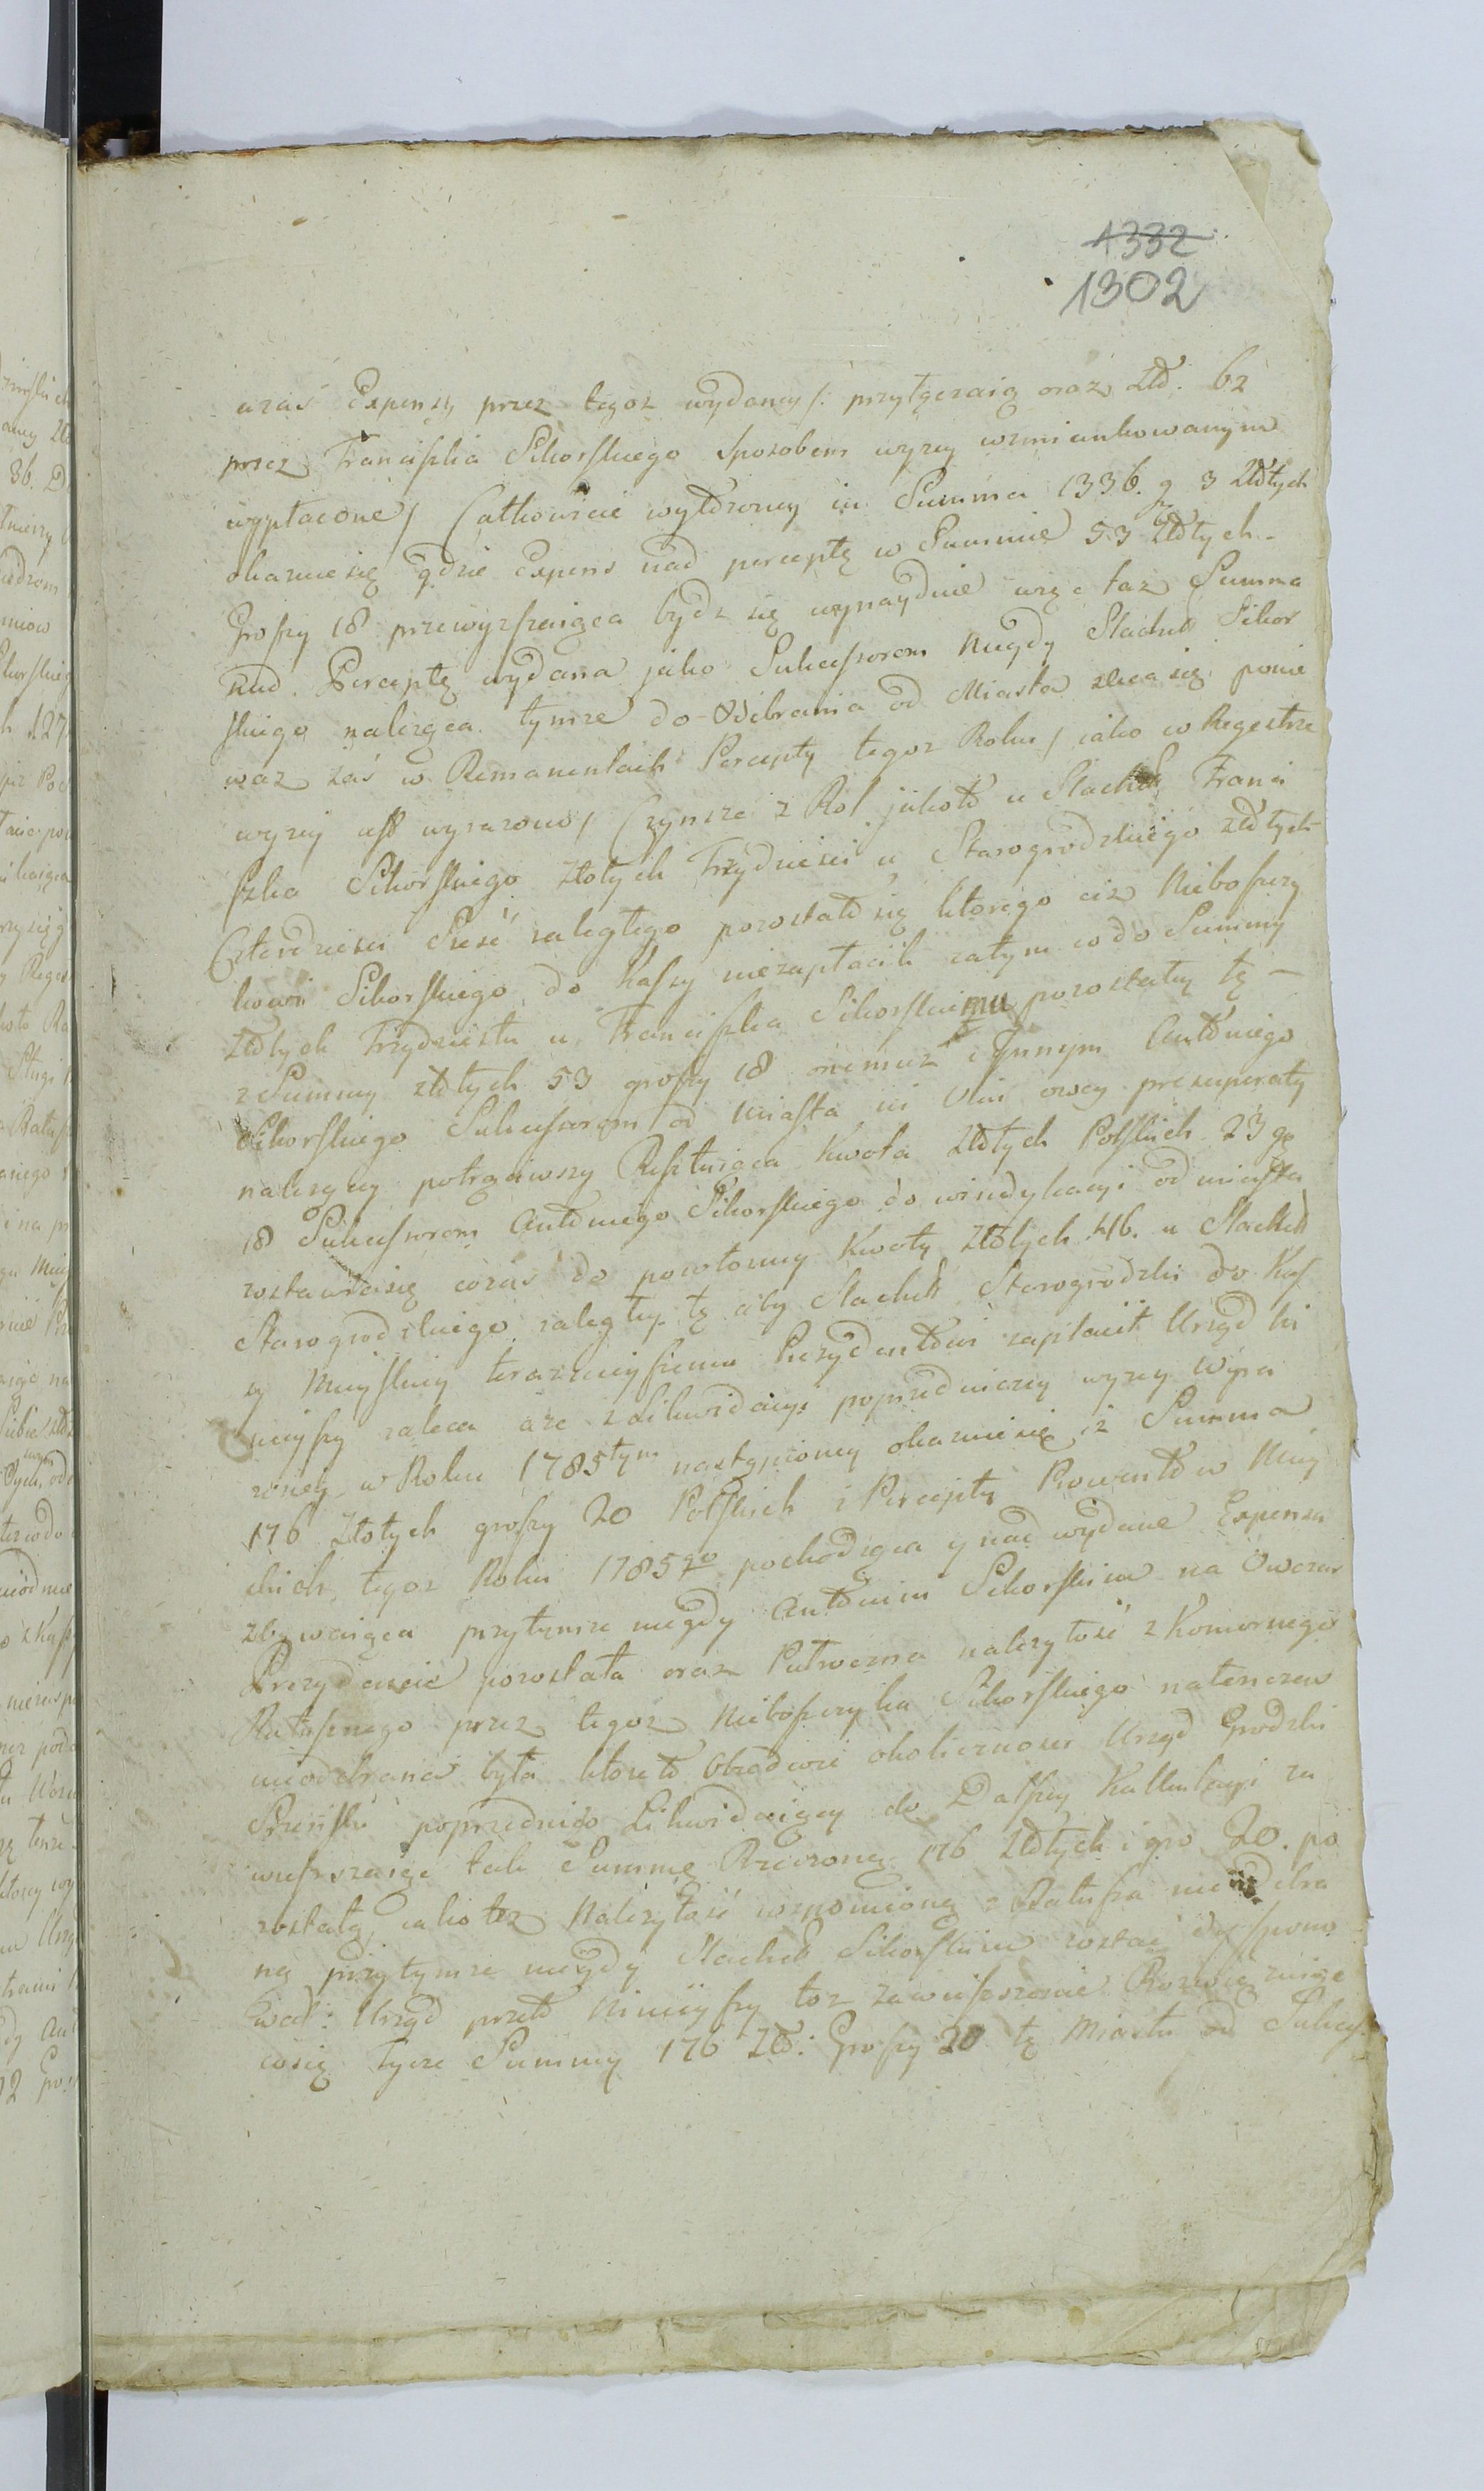 1332
1302
azaś Expensy przez tegoż wydaney /: przyłączaiąc oraz Złł. 62
przez Franciszka Sikorskiego sposobem wyżey wzmiankowanym
wypłacone / Całkowicie wyłożoney in Summa 1336. g. 3 Złłtych
okazuie się gdzie Expens nad perceptę w Summie 53 Złłtych
Groszy 18 przewyższaiąca bydź się wynayduie więc taż Summa
nad Perceptę wydana jako Sukcessorom Niegdy Slachet Sikor
skiego należąca tymże do Odebrania od Miasta zleca się ponie
waż zaś w Remanentach Percepty tegoż Roku / iako w Regestrze
wyżej wyrażono / Czynsze z Rol jakoto u Slachet Franci
szka Sikorskiego złotych Trzydzieści u Starogrodzkiego złłtych
Czterdzieści Sześć zaległego pozostało się ktorego ciż Nieboszczy
kowi Sikorskiego do Kassy niezapłacili zatym co do Summy
złłtych Trzydziestu u Franciszka Sikorskiemu pozostałey tę —
z Summy złłtych 53 groszy 18 onemuż i Jnnym Antoniego
Sikorskiego Sukcessorom od Miasta owey przeuperaty
należącey potrąciwszy Resztuiąca Kwota Złłtych Polskich 23 gr
18 Sukcessorom Antoniego Sikorskiego do windykacyi od miasta
zostawia się coraś do pozostałey Kwoty złłtych 46. u Slachet
Starogrodzkiego zaległey tę aby Slachet Starogrodzki do Kas
sy Mieyskiey terazniejszemu Prezydentowi zapłacił Urząd ni
nieyszy zaleca aże z Likwidacyi poprzedniczey wyżey wyra
żoney w Roku 1785tym nastąpioney okazuie się iż Summa
176 Złotych groszy 20 Polskich z Percepty Prowentow Miey
skich tegoż Roku 1785go pochodząca y nad wydane Expensa
zbywaiąca przytymże niegdy Antonim Sikorskim na Owczas
Prezydencie pozostała oraz Putroczna należytość z Komornego
Ratusznego przez tegoż Nieboszczyka Sikorskiego natenczas
nieodebrana była ktoreto Obodwie okoliczności Urząd Grodzki
poprzedniczo Likwiduiący do Dalszey Kalkulacyi za
wieszaiąc tak Summę Rzeczoną 176 Złłtych i gro 20. po
zostałą iako też Należytość wspomnioną z Ratusza nieodebra
ną przytymże niegdy Slachet Sikorskim zostać
Urząd przeto Ninieyszy toż zawieszenie Rozwięzuiąc
cosię tycze Summy 176 Złł: Groszy 20 tę Miastu od Sukces